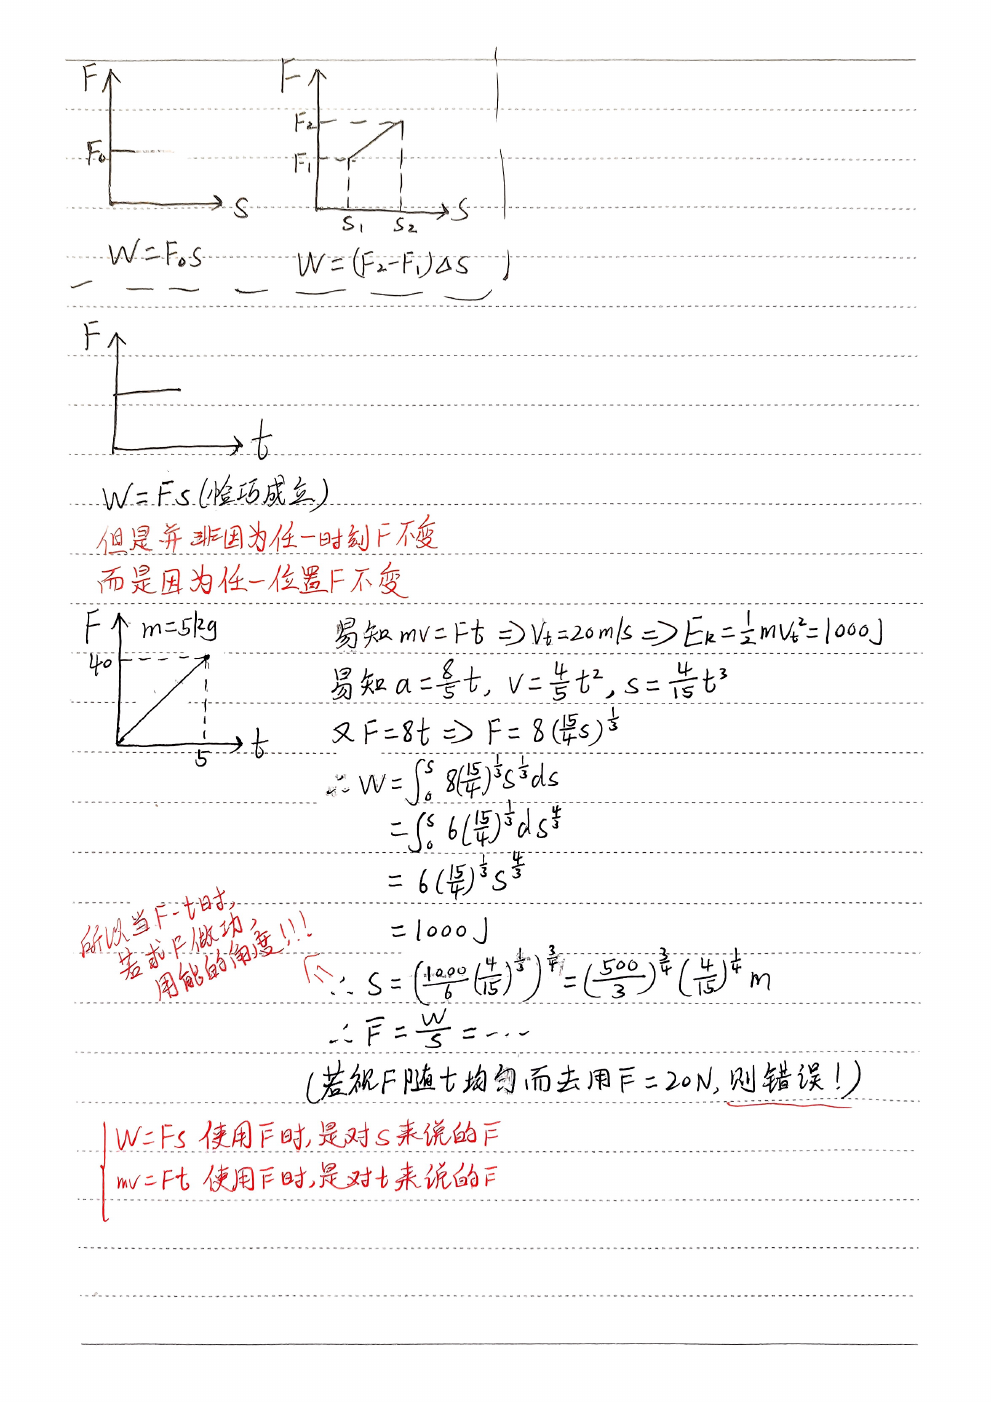 F F
F₂
F₀ F₁
S S₁ S₂ S
W=F₀S W=(F₂-F₁)ΔS
F
t
W=Fs(恰巧成立)
但是并非因为任一时刻F不变
而是因为任一位置F不变
F m=5kg
40
5 t
易知 mv=Ft ⇒ Vₜ=20m/s ⇒ Eₖ=½mVₜ²=1000J
易知 a=8/5 t, v=4/5 t², s=4/15 t³
又 F=8t ⇒ F=8(15/4 s)^(1/3)
∴ W=∫₀ˢ 8(15/4)^(1/3) s^(1/3) ds
=∫₀ˢ 6(15/4)^(1/3) ds^(4/3)
=6(15/4)^(1/3) s^(4/3)
=1000J
所以当F-t时,
若求F做功,
用能的角度!!!
∴ S=(1000/6 (4/15)^(1/3))^(3/4)=(500/3)^(3/4) (4/15)^(1/4) m
∴ F̅=W/S=...
(若视F随t均匀而去用F̅=20N,则错误!)
W=Fs 使用F̅时,是对s来说的F̅
mv=Ft 使用F̅时,是对t来说的F̅